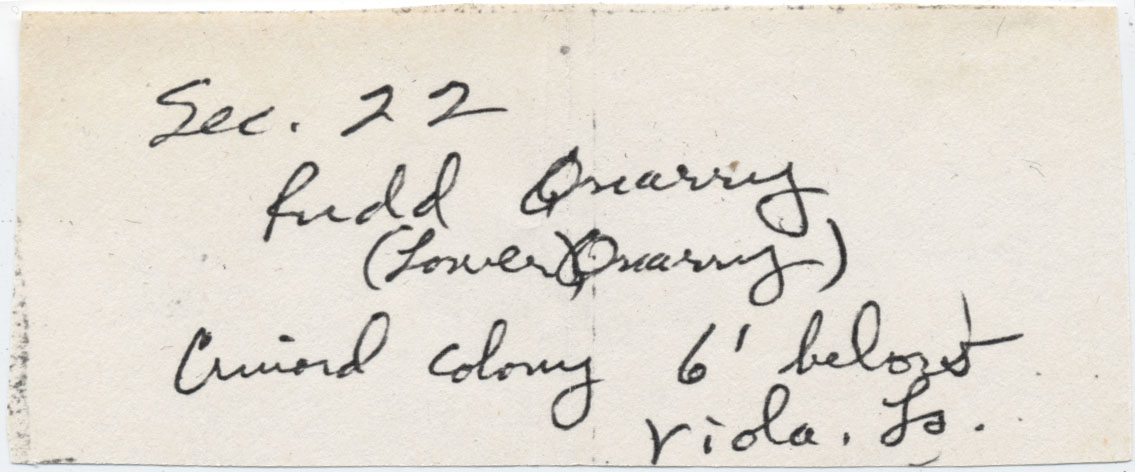 Sec. 22
Rudd Quarry
(Lower) Quarry)
Crinoid colony 6' below
Viola. Ls.